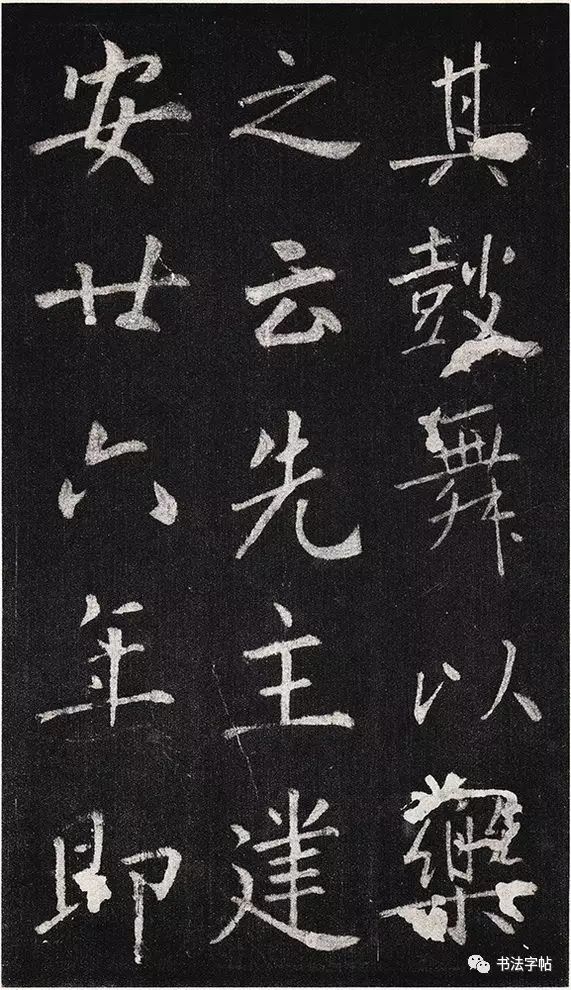 其鼓舞以樂
之云先主建
安廿六年即
书法字帖